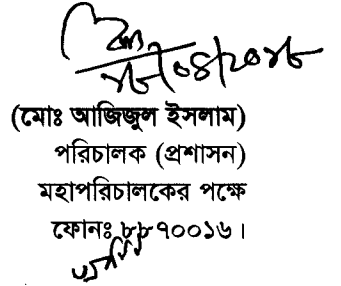 (মোঃ আজিজুল ইসলাম)
পরিচালক (প্রশাসন)
মহাপরিচালকের পক্ষে
ফোনঃ ৮৮৭০০১৬।